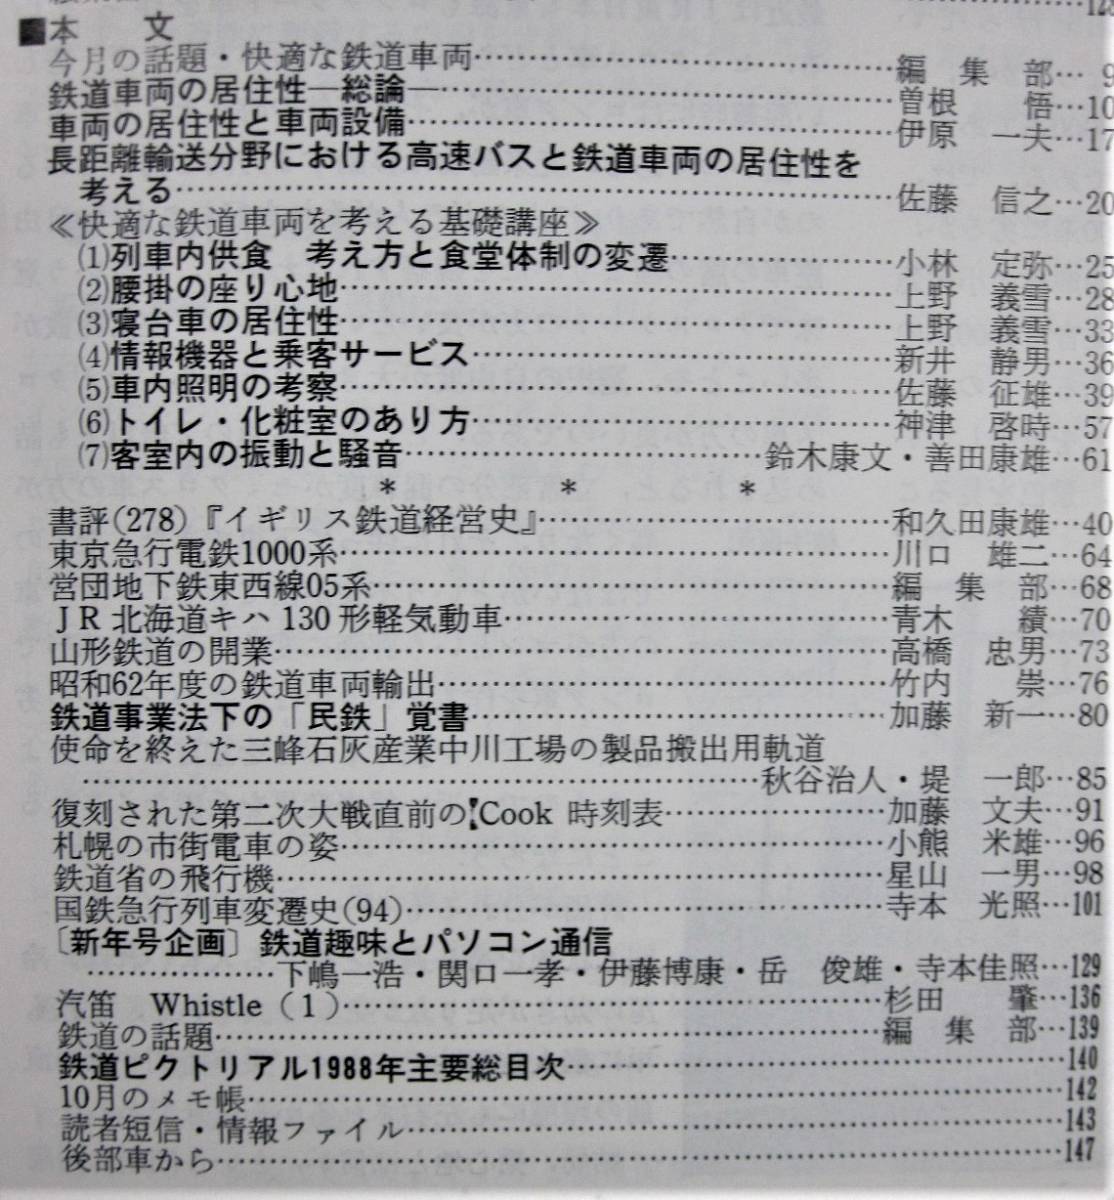 ■本　文
今月の話題・快適な鉄道車両……………………編　集　部… 9
鉄道車両の居住性―総論―……………………曽根　　悟…10
車両の居住性と車両設備……………………伊原　一夫…17
長距離輸送分野における高速バスと鉄道車両の居住性を
考える……………………佐藤　信之…20
≪快適な鉄道車両を考える基礎講座≫
⑴列車内供食　考え方と食堂体制の変遷……………………小林　定弥…25
⑵腰掛の座り心地……………………上野　義雪…28
⑶寝台車の居住性……………………上野　義雪…33
⑷情報機器と乗客サービス……………………新井　静男…36
⑸車内照明の考察……………………佐藤　征雄…39
⑹トイレ・化粧室のあり方……………………神津　啓時…57
⑺客室内の振動と騒音……………………鈴木康文・善田康雄…61
*　　*　　*
書評(278)『イギリス鉄道経営史』……………………和久田康雄…40
東京急行電鉄1000系……………………川口　雄二…64
営団地下鉄東西線05系……………………編　集　部…68
ＪＲ北海道キハ130形軽気動車……………………青木　　績…70
山形鉄道の開業……………………高橋　忠男…73
昭和62年度の鉄道車両輸出……………………竹内　　崇…76
鉄道事業法下の「民鉄」覚書……………………加藤　新一…80
使命を終えた三峰石灰産業中川工場の製品搬出用軌道
……………………秋谷治人・堤　一郎…85
復刻された第二次大戦直前のCook 時刻表……………………加藤　文夫…91
札幌の市街電車の姿……………………小熊　米雄…96
鉄道省の飛行機……………………星山　一男…98
国鉄急行列車変遷史(94)……………………寺本　光照…101
〔新年号企画〕鉄道趣味とパソコン通信
………………下嶋一浩・関口一孝・伊藤博康・岳　俊雄・寺本佳照…129
汽笛　Whistle（1）……………………杉田　　肇…136
鉄道の話題……………………編　集　部…139
鉄道ピクトリアル1988年主要総目次……………………140
10月のメモ帳……………………142
読者短信・情報ファイル……………………143
後部車から……………………147